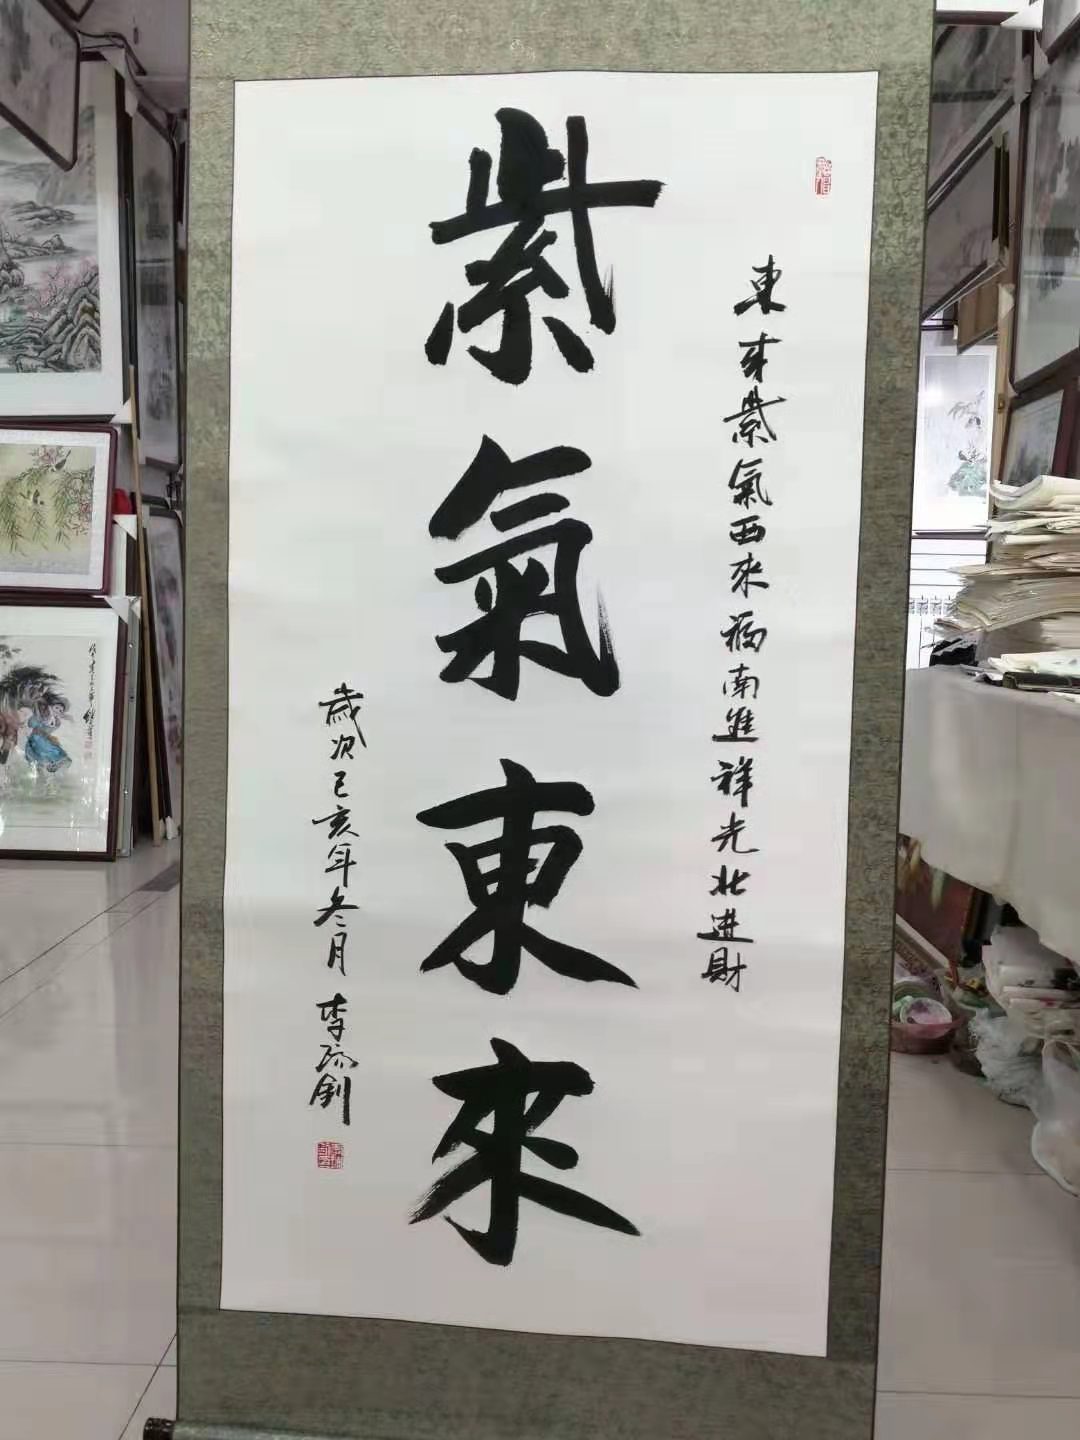 東来紫氣西來福南進祥光北进財
紫氣東來
歲次己亥年冬月 李